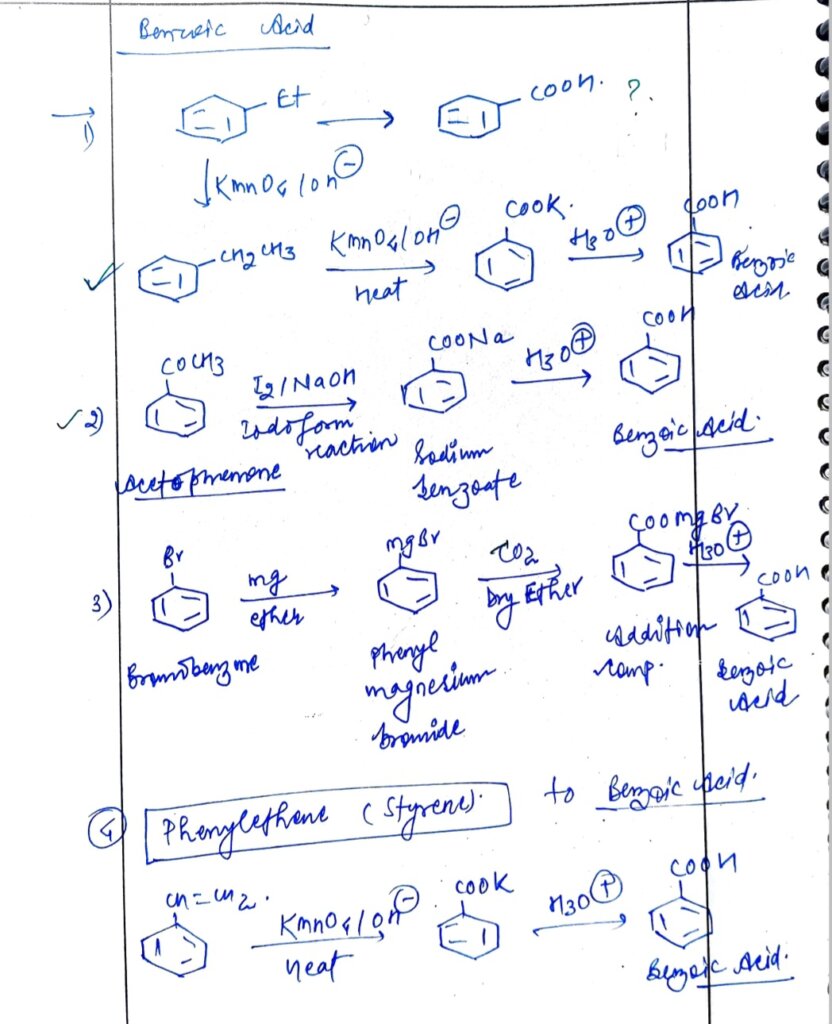 Benzoic Acid
1) Et → COOH. ?
↓ KMnO4/OH⊖
CH2CH3 KMnO4/OH⊖ heat → COOK. H3O⊕ → COOH Benzoic Acid
2) COCH3 I2/NaOH → COONa H3O⊕ → COOH
Iodoform reaction
Acetophenone Sodium benzoate Benzoic Acid.
3) Br Mg ether → MgBr CO2 Dry Ether → COOMgBr H3O⊕ → COOH
Bromobenzene Phenyl magnesium bromide Addition comp. Benzoic Acid
4 Phenylethene (Styrene). to Benzoic Acid.
CH=CH2. KMnO4/OH⊖ heat → COOK H3O⊕ → COOH
Benzoic Acid.